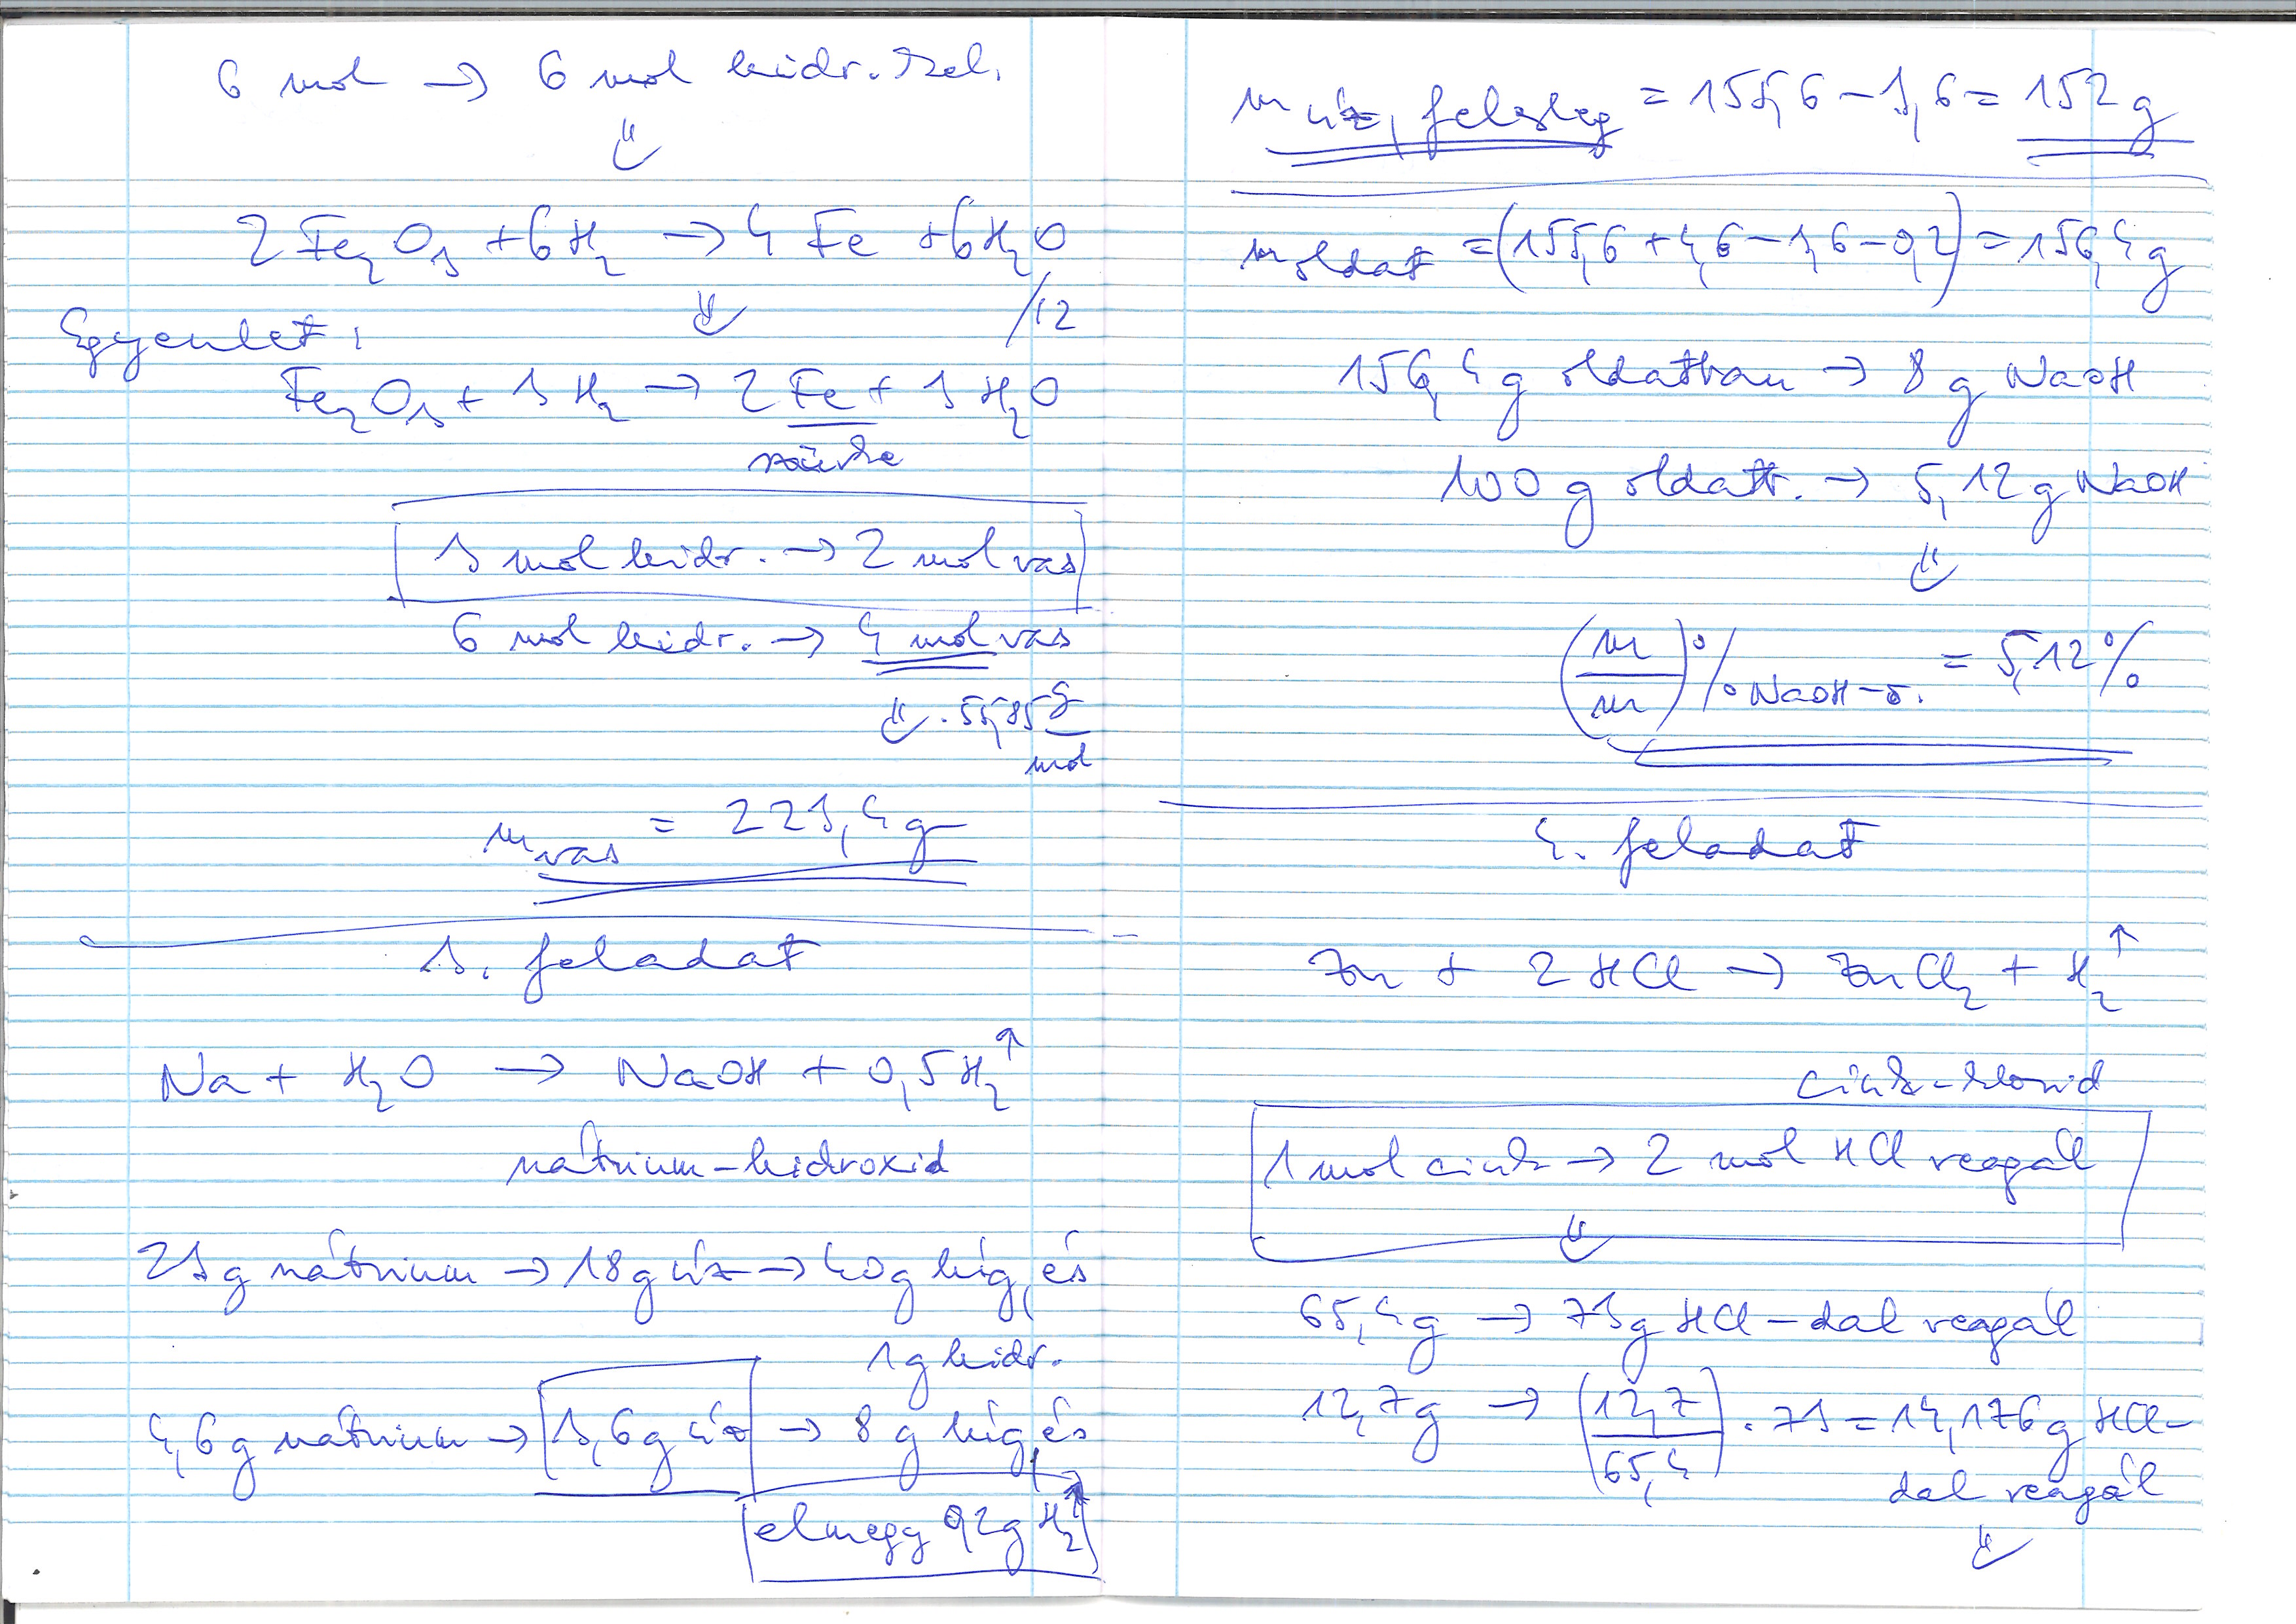 6 mol → 6 mol hidr. kel.
⇓
2 Fe₂O₃ + 6 H₂ → 4 Fe + 6 H₂O
⇓ /:2
Egyenlet:
Fe₂O₃ + 3 H₂ → 2 Fe + 3 H₂O
3 mol hidr. → 2 mol vas
6 mol hidr. → 4 mol vas
⇓ · 55,85 g/mol
m vas = 223,4 g
3. feladat
Na + H₂O → NaOH + 0,5 H₂↑
nátrium-hidroxid
23 g nátrium → 18 g víz → 40 g lúg, és
1 g hidr.
4,6 g nátrium → 3,6 g víz → 8 g lúg, és
elmegy 0,2 g H₂↑
m víz, felesleg = 155,6 - 3,6 = 152 g
m oldat = (155,6 + 4,6 - 3,6 - 0,2) = 156,4 g
156,4 g oldatban → 8 g NaOH
100 g oldatb. → 5,12 g NaOH
⇓
(m/m)% NaOH-o. = 5,12%
4. feladat
Zn + 2 HCl → ZnCl₂ + H₂↑
cink-klorid
1 mol cink → 2 mol HCl reagál
⇓
65,4 g → 73 g HCl-dal reagál
12,7 g → (12,7/65,4) · 73 = 14,176 g HCl-
dal reagál
⇓